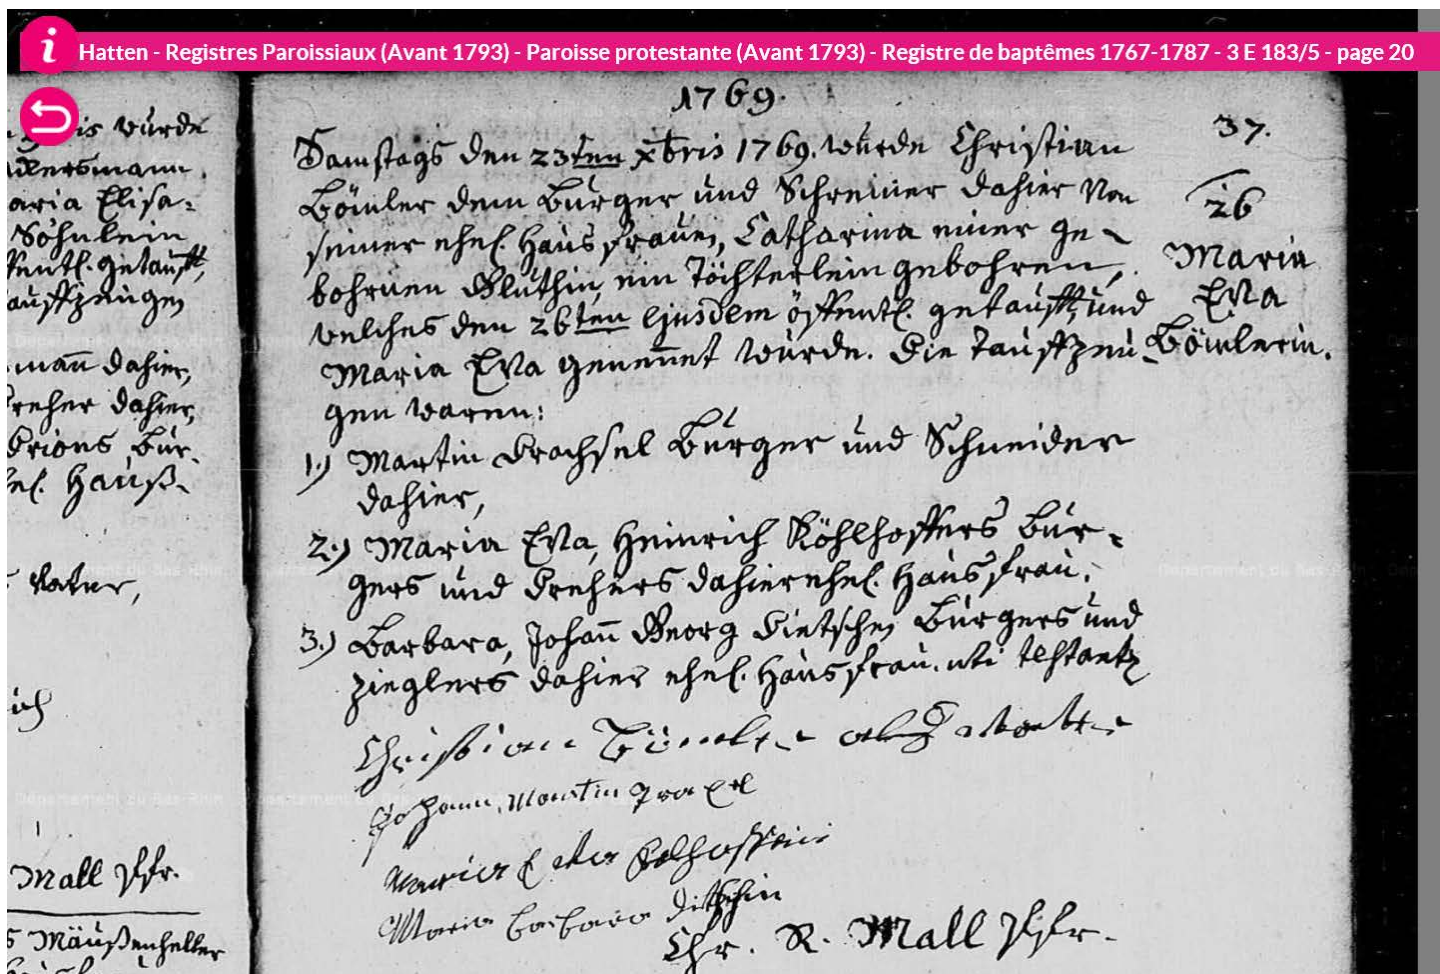 Hatten - Registres Paroissiaux (Avant 1793) - Paroisse protestante (Avant 1793) - Registre de baptêmes 1767-1787 - 3 E 183/5 - page 20
is wurde
ckersmann,
aria Elisa-
Söhnlein
ffentl. getaufft,
auffzeugen
mann dahier,
reher dahier,
Drions Bur-
hel. Hauß-
Vatter,
ich
Mall Pfr.
s Mäußenheller
1769.
37.
Samstags den 23ten Xbris 1769. wurde Christian
Bömler dem Burger und Schreiner dahier von
seiner ehel. Hausfrauen, Catharina einer ge-
bohrnen Gluthin, ein Töchterlein gebohren,
welches den 26ten ejusdem öffentl. getaufft, und
Maria Eva genen̄et wurde. Die Tauffzeu-
gen waren:
26
Maria
Eva
Bömlerin.
1.) Martin Drachsel Burger und Schneider
dahier,
2.) Maria Eva, Heinrich Köhlhoffers Bur-
gers und Drehers dahier ehel. Hausfrau.
3.) Barbara, Johan̄ Georg Dietschen Burgers und
Zieglers dahier ehel. Hausfrau. uti testantr
Christian Bömler als Vatter
Johann Martin Traxel
Maria Eva Kelhofferin
Maria Barbara Ditschin
Chr. R. Mall Pfr.